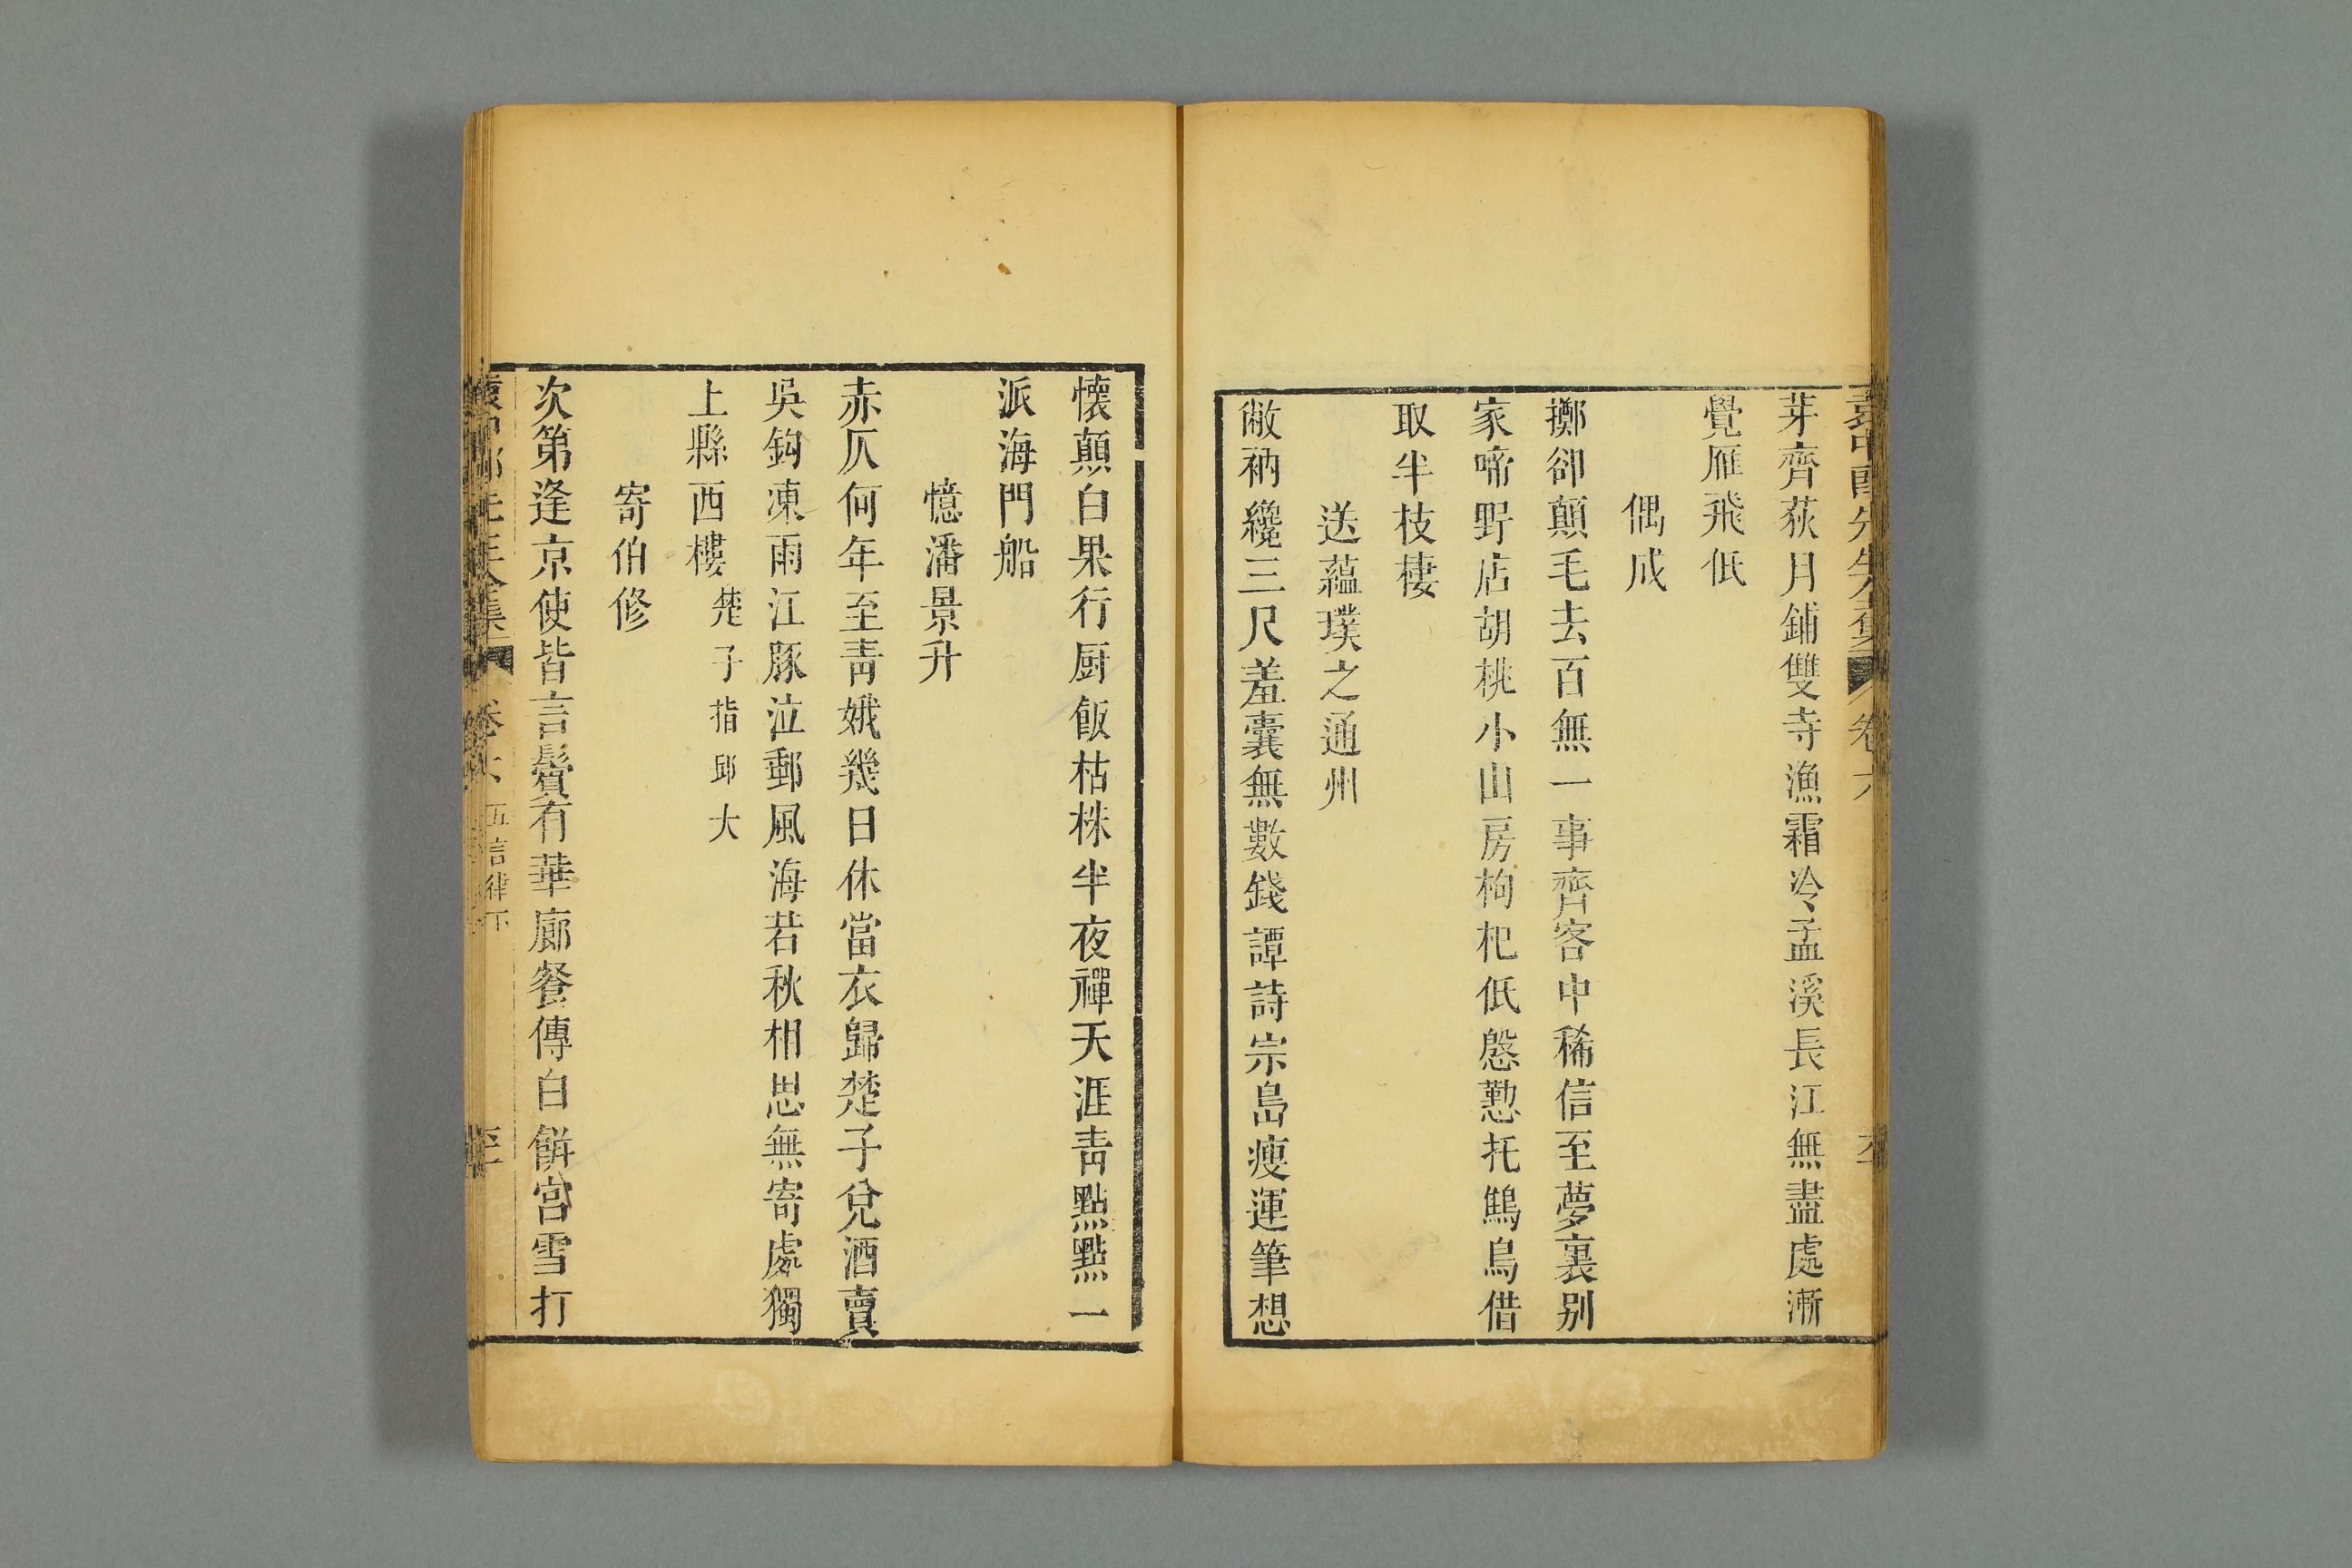 芽齊荻月鋪雙寺漁霜冷孟溪長江無盡處漸
覺雁飛低
偶成
擲卻顛毛去百無一事齊客中稀信至夢裏别
家啼野店胡桃小山房枸杞低慇懃托鷦鳥借
取半枝棲
送蘊璞之通州
敝衲纔三尺羞囊無數錢譚詩宗島瘦運筆想
懷顛白果行厨飯枯株半夜禪天涯青點點一
派海門船
憶潘景升
赤仄何年至青娥幾日休當衣歸楚子兌酒賣
吳鈎凍雨江豚泣郵風海若秋相思無寄處獨
上縣西樓楚子指邱大
寄伯修
次第逢京使皆言鬢有華廊餐傳白餅宫雪打
卷六 五言律下